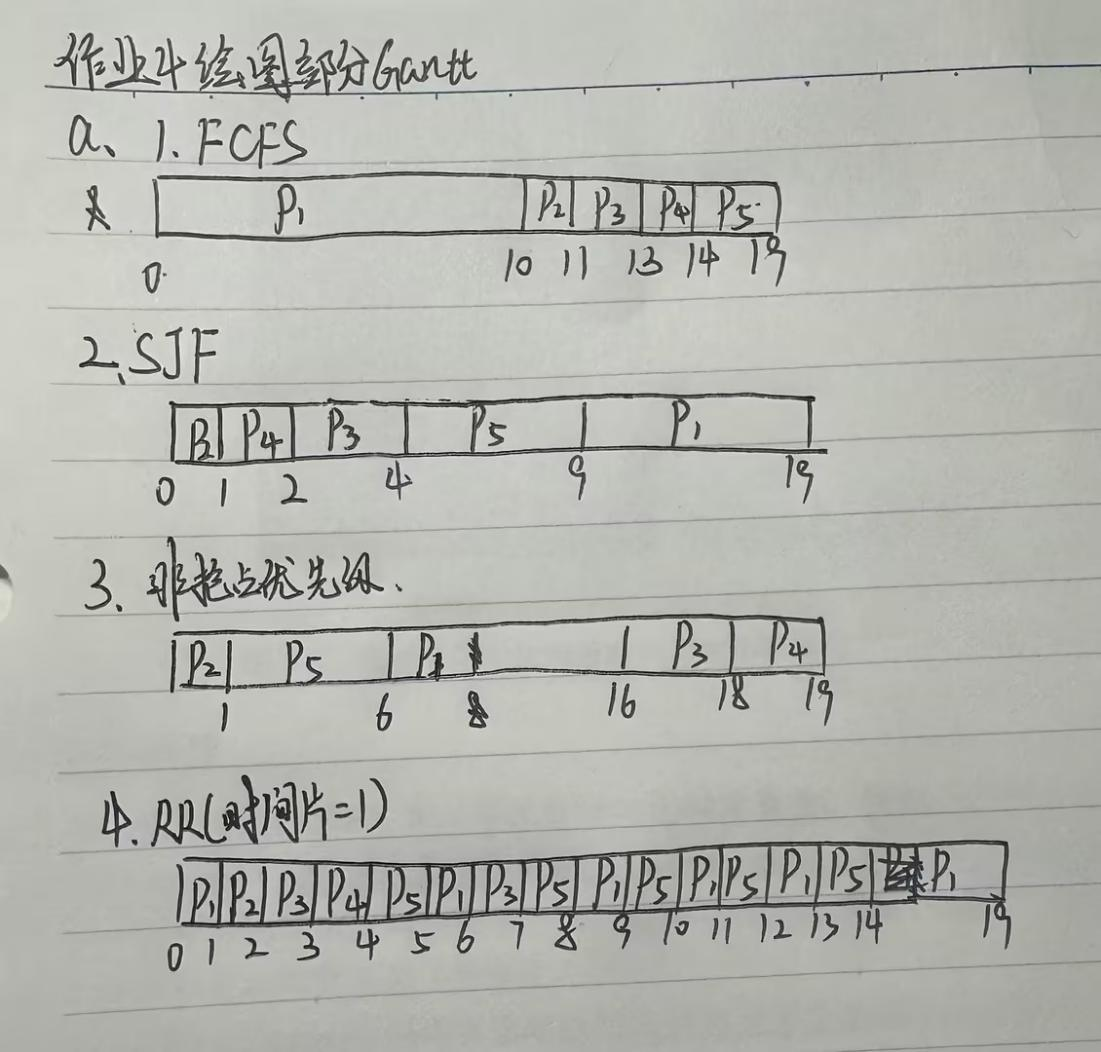 作业4绘图部分Gantt
a、1. FCFS
P1 P2 P3 P4 P5
0 10 11 13 14 19
2、SJF
P2 P4 P3 P5 P1
0 1 2 4 9 19
3、非抢占优先级.
P2 P5 P1 P3 P4
1 6 16 18 19
4. RR(时间片=1)
P1 P2 P3 P4 P5 P1 P3 P5 P1 P5 P1 P5 P1 P5 P1
0 1 2 3 4 5 6 7 8 9 10 11 12 13 14 19